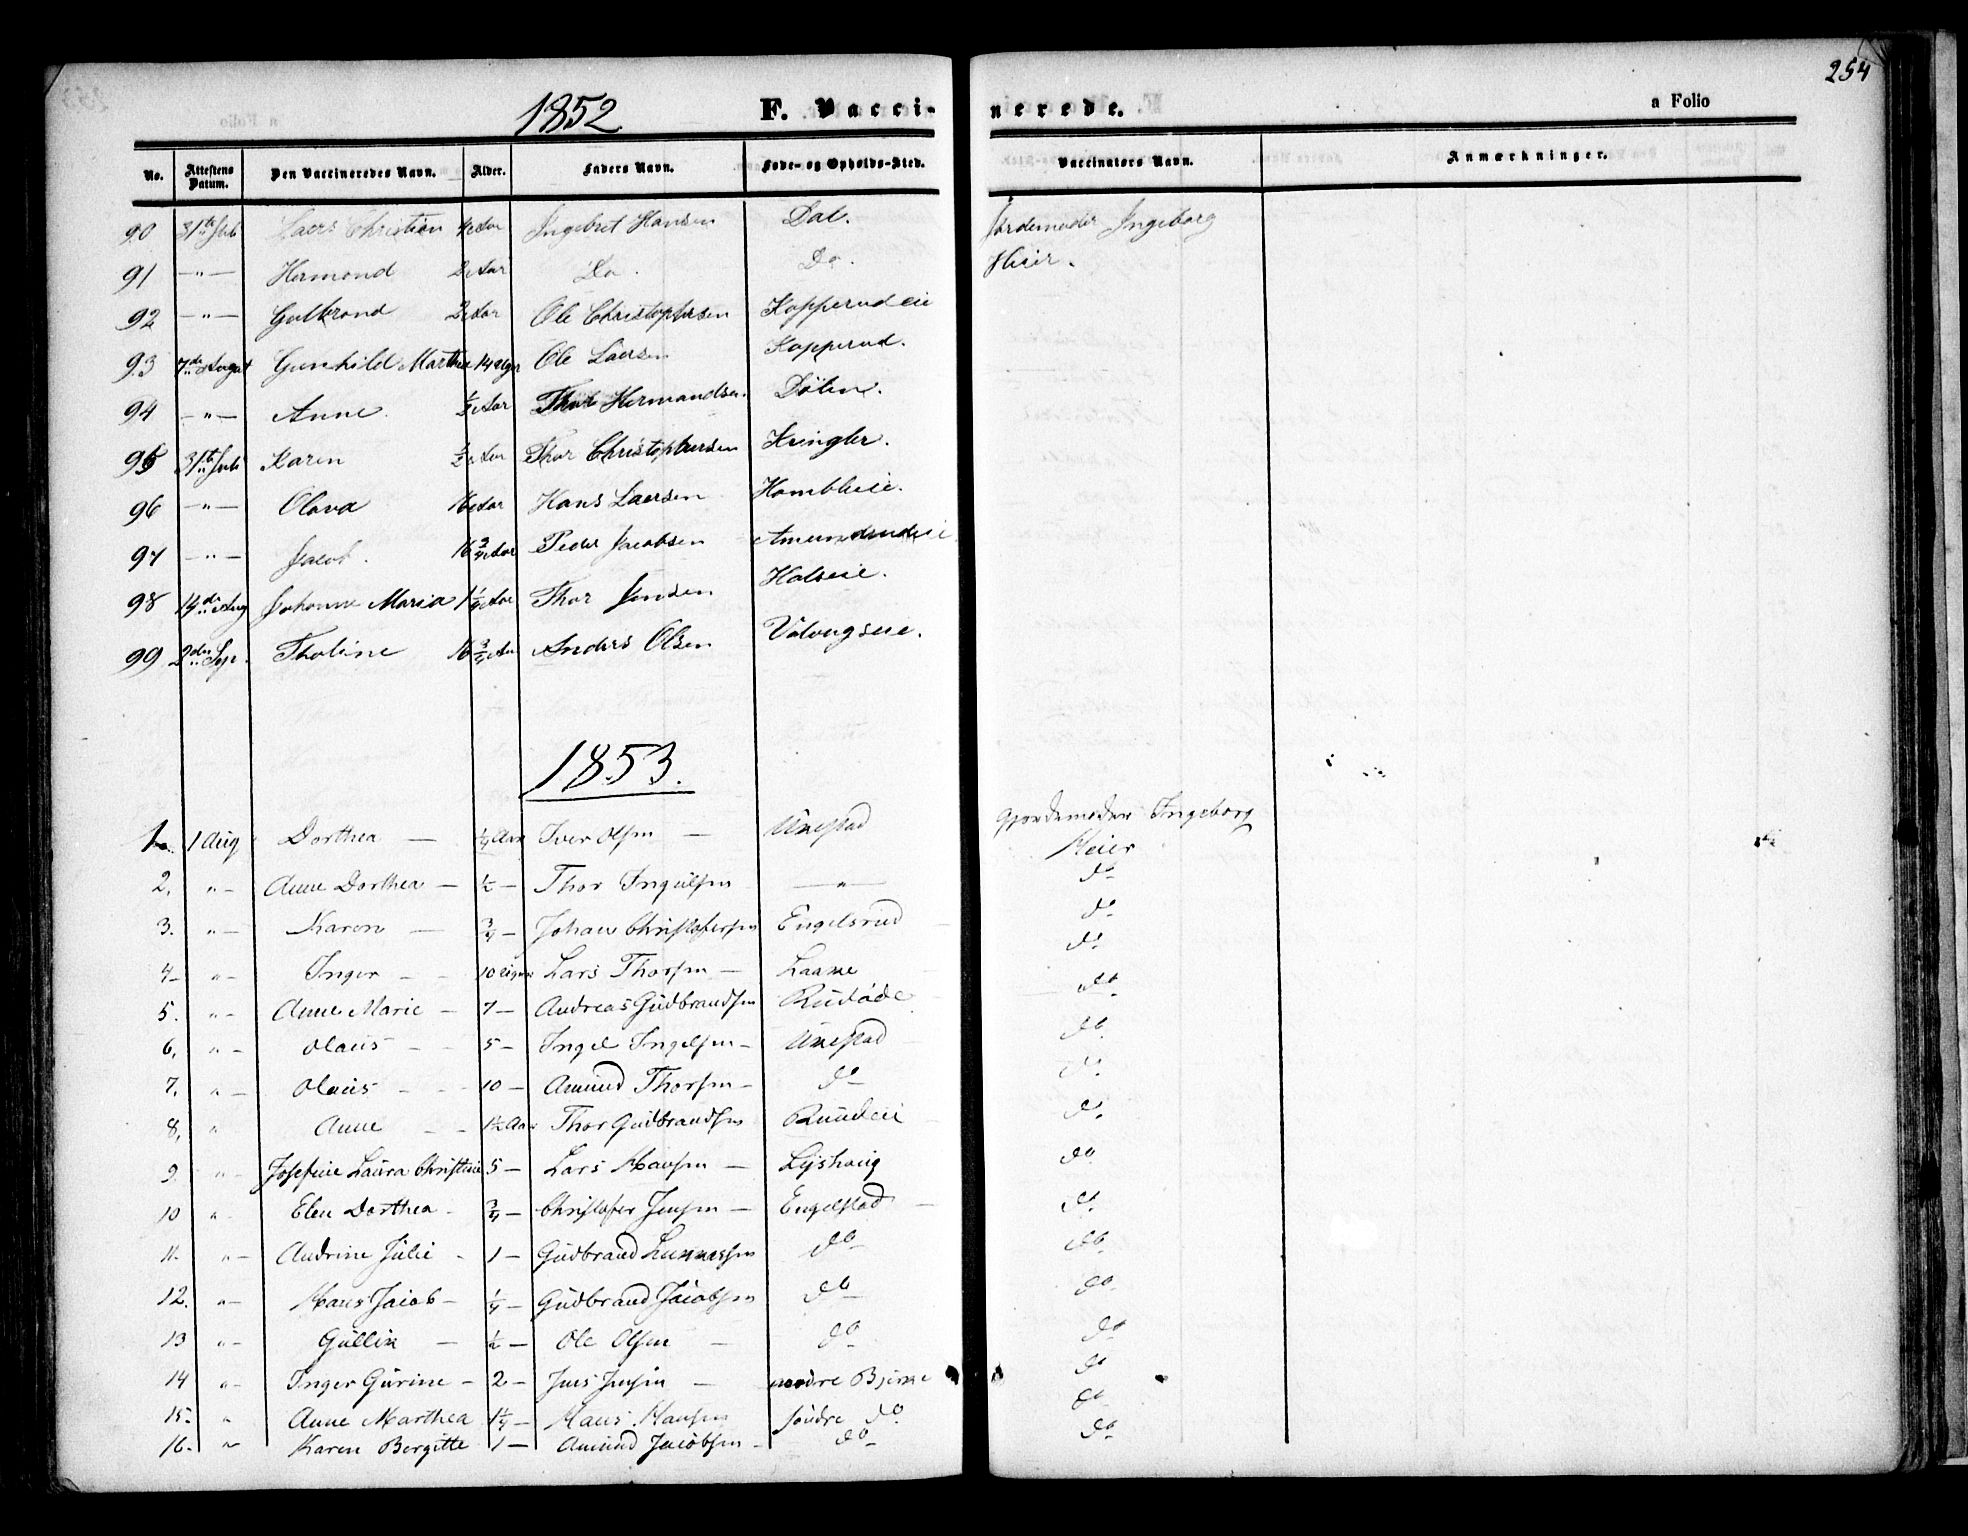 254
1852 F. Vaccinerede. a Folio
No. Attestens Datum. Den Vaccineredes Navn. Alder. Faders Navn. Føde- og Opholds-Sted. Vaccinatørs Navn. Anmærkninger.
90 31te Juli Laers Christian Aar Ingebret Hansen Dal. Jordemoder Ingeborg
91 -"- Hermond 2 Aar Do. Do. Heier.
92 -"- Gulbrand Aar Ole Christophersen Kopperudeie
93 7de August Gunhild Marthea 14 Uger Ole Laersen Kopperud.
94 -"- Anne ½ Aar Thor Hermandsen Dølen.
95 31te Juli Karen ½ Aar Thor Christophersen Kringler.
96 -"- Olava Aar Hans Laersen Hombleie.
97 -"- Jacob. ¾ Aar Peder Jacobsen Amundrudeie
98 14de Aug Johanne Maria 1¼ Aar Thor Jensen Holseie.
99 2den Sep. Tholine ¾ Aar Anders Olsen
1853.
1. 1 Aug Dorthea — ¼ Aar Iver Olsen — Unestad Gjordemoder Ingeborg Heier
2. "- Anne Dorthea — ½ — Thor Ingulsen —"— do
3. "- Karen — ¾ — Johan Christofersen Engelsrud do
4- "- Inger - - 10 Uger Lars Thorsen — Laane do
5. "- Anne Marie - 7 — Andreas Gudbrandsen Rudøde do
6. "- Olaus - - 5 — Ingel Ingelsen — Unestad do
7. "- Olaus - - 10 — Amund Thorsen — do do
8. " Anne - - 1½ Aar Thor Gudbrandsen Ruudeie do
9 "- Josefine Laura Christine 5 — Lars Hansen — Lyshaug do
10 "- Elen Dorthea - ¾ — Christofer Jensen — Engelstad do
11. "- Andrine Julie - 1 — Gudbrand do do
12. "- Hans Jacob — ¼ — Gudbrand Jacobsen do do
13 "- Gullik — ½ — Ole Olsen — do do
14 "- Inger Gurine — 2 — Jens Jensen — nordre Bjerke do
15- " Anne Marthea 1¼ — Hans Hansen søndre do do
16- " Karen Bergitte 1 — Amund Jacobsen — do do